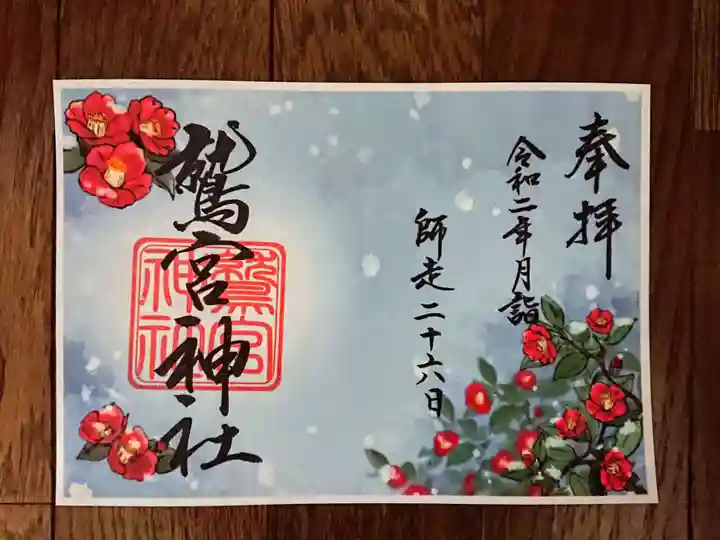 奉拝
令和二年月詣
師走二十六日
鷲宮神社
鷲宮
神社